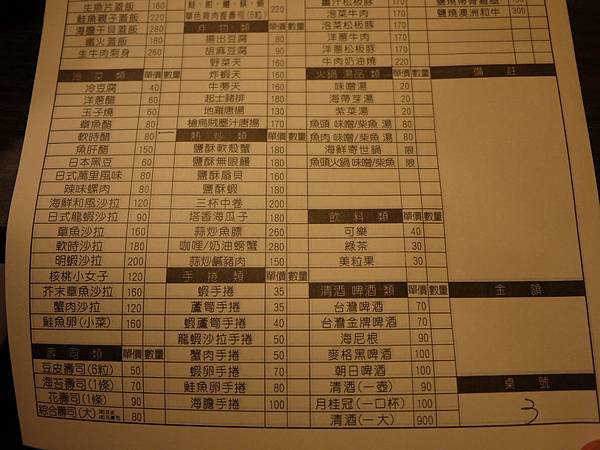 生魚片蓋飯 160
鮭魚親子蓋飯 220
海膽干貝蓋飯 280
鐵火蓋飯 280
生牛肉刺身 260
冷菜類 單價 數量
冷豆腐 40
洋蔥醋 60
玉子燒 60
章魚醋 80
軟時醋 80 一
魚肝醋 150
日本黑豆 60
日式萬里風味 80
辣味螺肉 80
海鮮和風沙拉 120
日式龍蝦沙拉 90
章魚沙拉 160
軟時沙拉 180
明蝦沙拉 200
核桃小女子 120
芥末章魚沙拉 160
蟹肉沙拉 120
鮭魚卵(小菜) 160
壽司類 單價 數量
豆皮壽司(6粒) 50
海苔壽司(1條) 70
花壽司(1條) 90
綜合壽司(大) 80
220
炸物類 單價 數量
揚出豆腐 80
胡麻豆腐 90
野菜天
炸蝦天 160
牛蒡天 160
起士豬排 180
地雞唐揚 130
槍烏賊墨汁唐揚 170
熱炒類 單價 數量
鹽酥軟殼蟹 180
鹽酥無眼鰻 180
鹽酥扇貝 160
鹽酥蝦 180
三杯中卷 200
塔香海瓜子 180
蒜炒魚膘 260
咖哩/奶油螃蟹 280
蒜炒鹹豬肉 150
手捲類 單價 數量
蝦手捲 35
蘆筍手捲 35
蝦蘆筍手捲 40
龍蝦沙拉手捲 50
蟹肉手捲 50
蝦卵手捲 70
鮭魚卵手捲 80
海膽手捲 100
薑汁松板豚 170
泡菜牛肉 170
泡菜松板豚 170
洋蔥牛肉 170
洋蔥松板豚 170
牛肉奶油燒 220
火鍋 湯品類 單價 數量
味噌湯 20
海帶芽湯 20
紫菜湯 20
魚頭 味噌/柴魚 湯 80
魚肉 味噌/柴魚 湯 80
海鮮寄世鍋 限
魚頭火鍋 味噌/柴魚 限
飲料類 單價 數量
可樂 40
綠茶 30
美粒果 30
清酒 啤酒 類 單價 數量
台灣啤酒 70
台灣金牌啤酒 70
海尼根 90
麥格黑啤酒 100
朝日啤酒 100
清酒(一壺) 90
月桂冠(一口杯) 100
清酒(一大) 900
鹽燒澳洲和牛 300
備註
金額
桌號
3